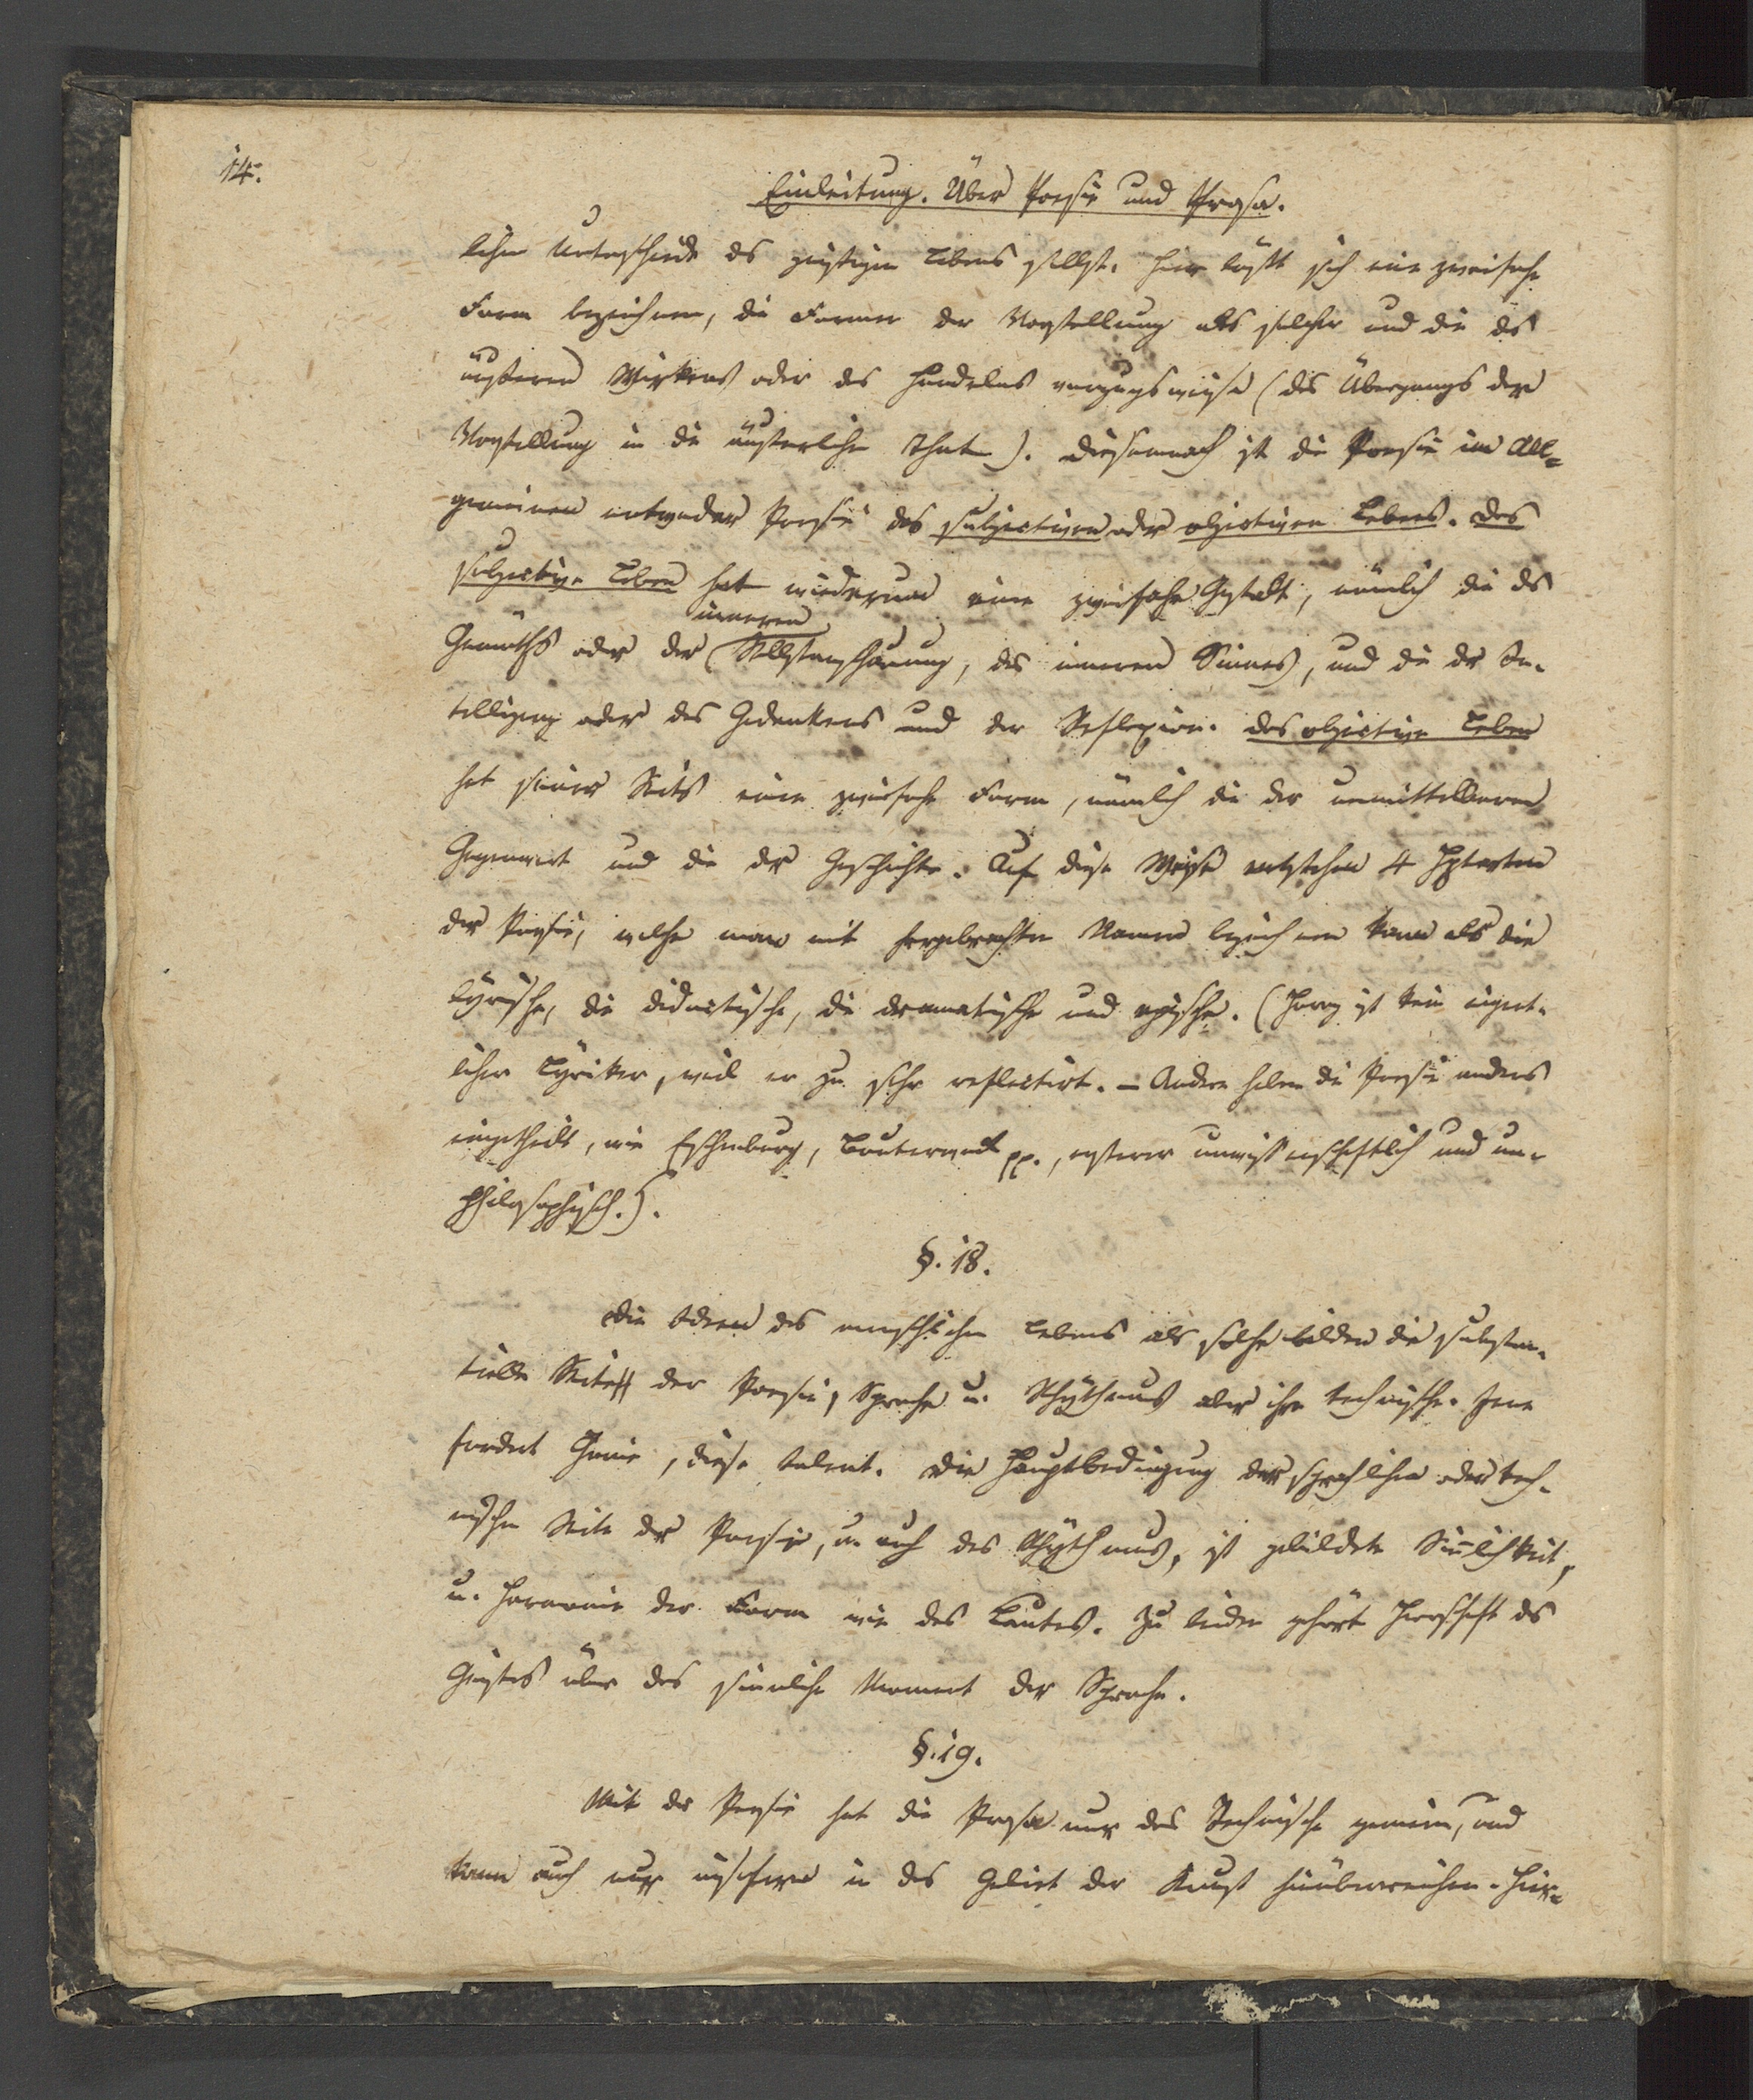 14.
Einleitung. Über Poesie und Prosa.
lichen Unterschiede des geistigen Lebens selbst. Hier läßt sich eine zweifache
Form bezeichnen, die Formen der Vorstellung als solcher und die des
äußeren Wirkens oder des Handelns vorzugsweise (des Übergangs der
Vorstellung in die äußerliche That). Diesemnach ist die Poesie im All=
gemeinen entweder Poesie des subjectiven oder objectiven Lebens. Das
subjective Leben hat wiederum eine zweifache Gestalt, nämlich die des
inneren
Gemüths oder der (Selbstanschauung, des inneren Sinnes), und die der In-
telligenz oder des Gedankens und der Reflexion. Das objective Leben
hat seiner Seits eine zweifache Form, nämlich die der unmittelbaren
Gegenwart und die der Geschichte. Auf diese Weise entstehen 4 Hptarten
der Poesie, welche man mit hergebrachten Namen bezeichnen kann als die
lyrische, die didactische, die dramatische und epische. (Horaz ist kein eigent-
licher Lyriker, weil er zu sehr reflectirt. – Andere haben die Poesie anders
eingetheilt, wie Eschenburg, Bouterweck pp., ersterer unwissenschaftlich und un-
philosophisch.).
§. 18.
Die Ideen des menschlichen Lebens als solche bilden die substan-
tielle Seite der Poesie, Sprache u. Rhythmus aber ihre technische. Jene
fordert Genie, diese Talent. Die Hauptbedingung der sprachlichen oder tech-
nischen Seite der Poesie, u. auch des Rhythmus, ist gebildete Sinnlichkeit,
u. Harmonie der Form wie des Lautes. Zu beiden gehört Herrschaft des
Geistes über das sinnliche Moment der Sprache.
§. 19.
Mit der Poesie hat die Prosa nur das Technische gemein, und
kann auch nur insofern in das Gebiet der Kunst hinüberreichen. Hier=